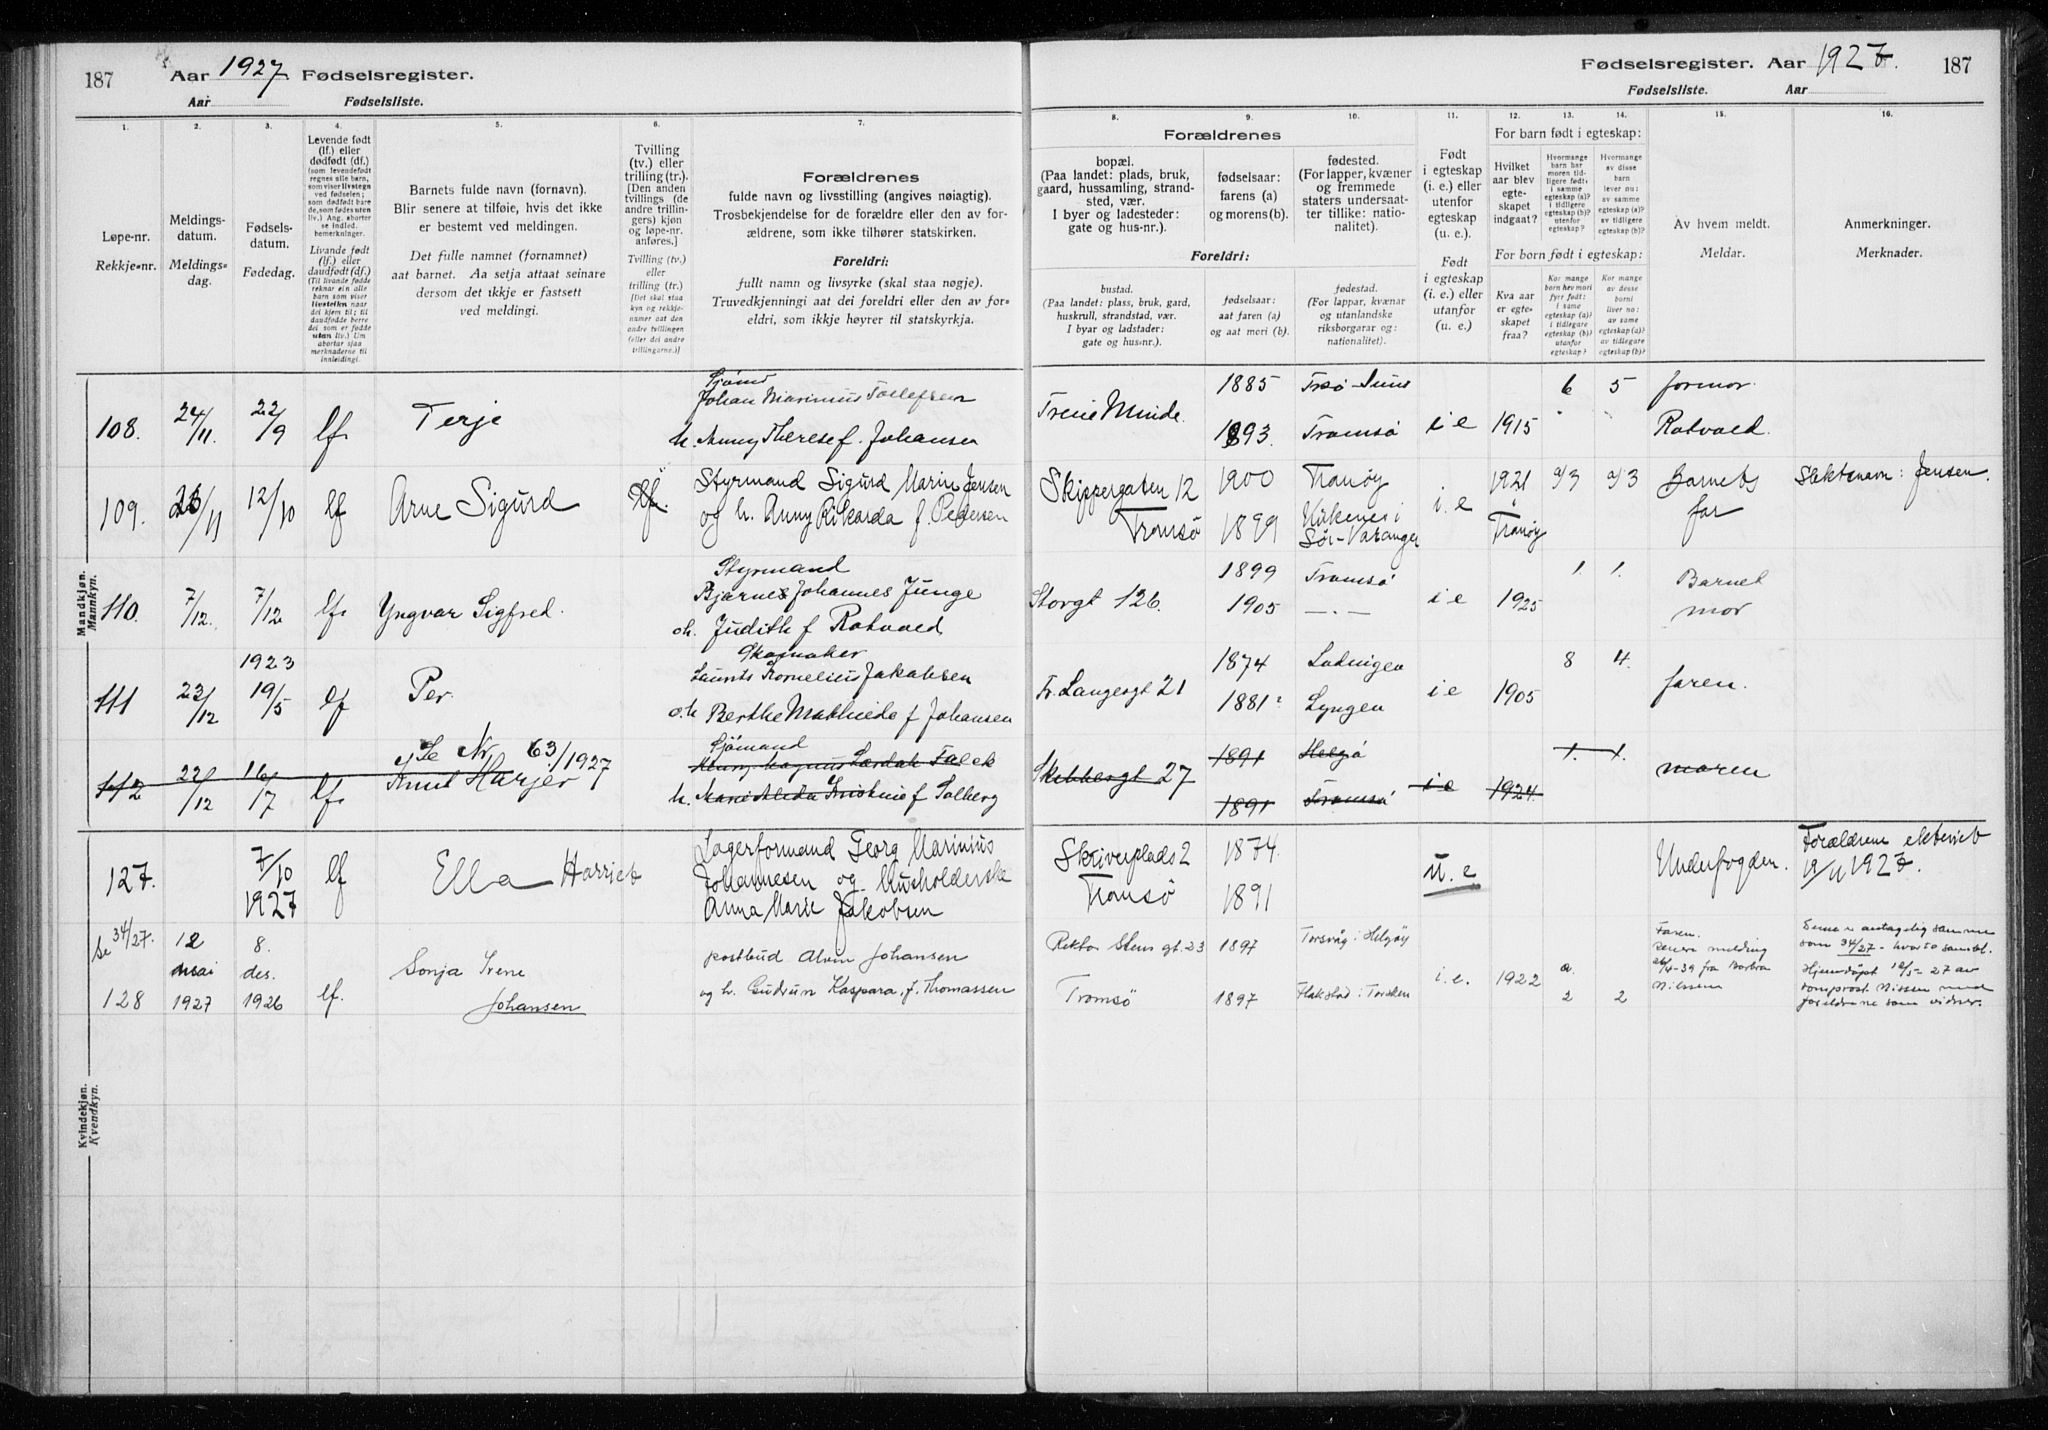 187 Aar 1927 Fødselsregister.
Aar Fødselsliste.
Fødselsregister. Aar 1927. 187
Fødselsliste. Aar
1.
Løpe-nr.
Rekkje-nr.
2.
Meldings-
datum.
Meldings-
dag.
3.
Fødsels-
datum.
Fødedag.
4.
Levende født
(lf.) eller
dødfødt (df.)
(som levendefødt
regnes alle barn,
som viser livstegn
ved fødselen;
som dødfødt bare
de, som fødes uten
liv.) Ang. aborter
se indled.
bemerkninger.
Livande født
(lf.) eller
daudfødt (df.)
(Til livande fødde
reknar ein alle
barn som viser
livsteikn naar
dei kjem til; til
daudfødde berre
dei som er fødde
utan liv.) Um
abortar sjaa
merknaderne til
innleidingi.
5.
Barnets fulde navn (fornavn).
Blir senere at tilføie, hvis det ikke
er bestemt ved meldingen.
Det fulle namnet (fornamnet)
aat barnet. Aa setja attaat seinare
dersom det ikkje er fastsett
ved meldingi.
6.
Tvilling
(tv.) eller
trilling (tr.).
[Den anden
tvillings (de
andre trillin-
gers) kjøn
og løpe-nr.
anføres.]
Tvilling (tv.)
eller
trilling (tr.)
[Det skal staa
kyn og rekkje-
numer aat den
andre tvillingen
(eller dei andre
tvillingarne.)]
7.
Forældrenes
fulde navn og livsstilling (angives nøiagtig).
Trosbekjendelse for de forældre eller den av for-
ældrene, som ikke tilhører statskirken.
Foreldri:
fullt namn og livsyrke (skal staa nøgje).
Truvedkjenningi aat dei foreldri eller den av for-
eldri, som ikkje høyrer til statskyrkja.
Forældrenes
8.
bopæl.
(Paa landet: plads, bruk,
gaard, hussamling, strand-
sted, vær.
I byer og ladesteder:
gate og hus-nr.).
9.
fødselsaar:
farens (a)
og morens (b).
10.
fødested.
(For lapper, kvæner
og fremmede
staters undersaat-
ter tillike: natio-
nalitet).
Foreldri:
bustad.
(Paa landet: plass, bruk, gard,
huskrull, strandstad, vær.
I byar og ladstader:
gate og hus-nr.).
fødselsaar:
aat faren (a)
og aat mori (b).
fødestad.
(For lappar, kvænar
og utanlandske
riksborgarar og:
nationalitet).
11.
Født
i egteskap
(i. e.) eller
utenfor
egteskap
(u. e.).
Født
i egteskap
(i. e.) eller
utanfor
(u. e.)
For barn født i egteskap:
12.
Hvilket
aar blev
egte-
skapet
indgaat?
13.
Hvormange
barn har
moren tid-
ligere født:
i samme
egteskap (a)?
i tidligere
egteskap (b)?
utenfor
egteskap?
14.
Hvormange
av disse
barn
lever nu:
av samme
egteskap (a)?
av tidligere
egteskap (b)?
For born født i egteskap:
Kva aar
er egte-
skapet
fraa?
Kor mange
barn hev mori
fyrr født:
i same
egteskap (a)?
i tidlegare
egteskap (b)?
utanfor
egteskap?
Kor mange
av desse
borni
liver no:
av same
egteskap (a)?
av tidlegare
egteskap (b)?
15.
Av hvem meldt.
Meldar.
16.
Anmerkninger.
Merknader.
Mandkjøn.
Mannkyn.
108. 24/11. 22/9 lf. Terje
Sjømd
Johan Marinus
h. Anny Therese f. Johansen
Minde. 1885 1893. Tromsø i e 1915 6 5 formor
Rotvold.
109. 23/11 12/10 lf Arne Sigurd
Styrmand Sigurd Marin Jensen
og h. Anny Rikarda f. Pedersen
Skippergaten 12
Tromsø
1900 Tranøy
1899 Kirkenes i
Sør-Varanger
i. e 1921
Tranøy
a/3 a/3 Barnets
far
Slektsnavn: Jensen.
110. 7/12. 7/12 lf. Yngvar Sigfred.
Styrmand
Bjarne Johannes Junge
o.h. Judith f Rotvold
Storgt 126. 1899 Tromsø
1905 —.—
i e 1925 1. 1. Barnet
mor
111 23/12 1923
19/5 lf Per.
Skomaker
Kornelius Jakobsen
o.h Berthe Mathilde f Johansen
Fr. Langesgt 21 1874 Lødingen
1881 Lyngen
i e 1905 8 4. faren.
Se Nr 63/1927
112 22/12 16/17 lf. Knut Harjer
Sjømand
h. f Solberg
27 1891 Helgø
1891 Tromsø
i e 1924. 1. 1. moren
Kvindekjøn.
Kvendkyn.
127. 7/10
1927 lf Ella Harriet
Lagerformand Georg Marinius
Johannesen og Husholderske
Anna Marie Jakobsen
Skriverplads 2
Tromsø
1874.
1891
u. e Underfogden.
Forældrene ektevied
19/11 1927.
se 34/27.
128 12
mai
1927 8.
des.
1926 lf. Sonja Irene
Johansen
postbud Alvin Johansen
og h. Gudrun Kaspara f. Thomassen
Rektor Steens gt. 23
Tromsø
1897 Torsvåg i Helgøy
1897 Flakstad i Torsken
i. e. 1922 a.
2 2
Faren.
Senere melding
26/4-39 fra Borbra
Nilssen
Denne er antagelig samme
som 34/27 - hvorto samstl.
Hjemdøpt 12/5-27 av
domprost Nissen med
foreldrene som vidner.